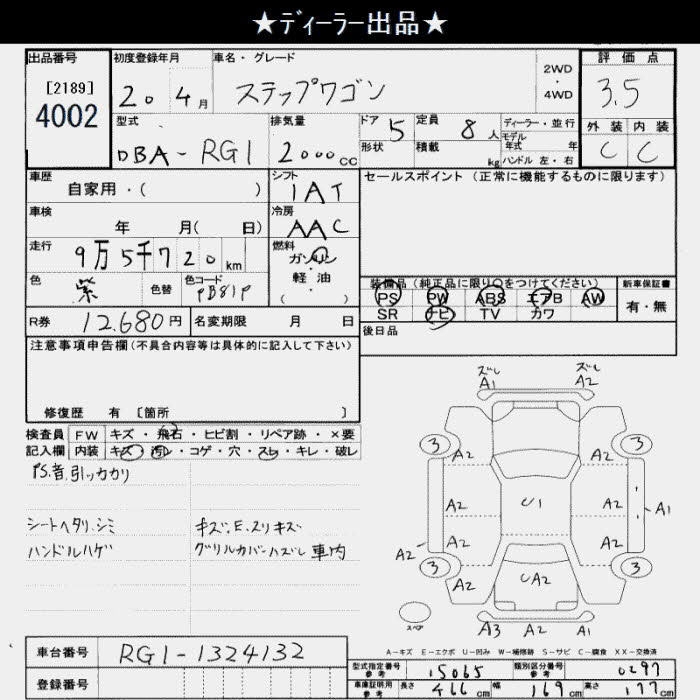 ★ディーラー出品★
出品番号
[2189]
4002
初度登録年月
20年4月
車名・グレード
ステップワゴン
2WD
・
4WD
評価点
3.5
型式
DBA-RG1
排気量
2000cc
ドア 5
形状
定員 8人
積載 kg
ディーラー・並行
モデル
年式 年
ハンドル 左・右
外装 内装
C C
車歴
自家用・( )
シフト
IAT
セールスポイント(正常に機能するものに限ります)
車検
年 月( 日)
冷房
AAC
走行
9万5千720km
燃料
ガソリン
・
軽油
( )
色
紫
色替
色コード
PB81P
装備品(純正品に限り○をつけてください)
PS PW ABS エアB AW
SR ナビ TV カワ
新車保証書
有・無
R券 12,680円
名変期限 月 日
後日品
注意事項申告欄(不具合内容等は具体的に記入して下さい)
修復歴 有 [箇所 ]
検査員 FW キズ・飛石・ヒビ割・リペア跡・×要
記入欄 内装 キズ・汚レ・コゲ・穴・スレ・キレ・破レ
P.S.音.引ッカカリ
シートヘタリ.シミ
キズ.E.スリキズ
ハンドルハゲ
グリルカバーハズレ 車内
ズレ ズレ
A1 A2
3 3
A2 A2
A2 U1 A2 A1
A2 A2
A2
3 3
A2 UA2 A2
スペア
A3 A2 A1
A-キズ E-エクボ U-凹み W-補修跡 S-サビ C-腐食 XX-交換済
車台番号 RG1-1324132
登録番号
型式指定番号 参考 15065
類別区分番号 参考 0297
車庫証明用 参考 長さ 466cm 幅 169cm 高さ 177cm